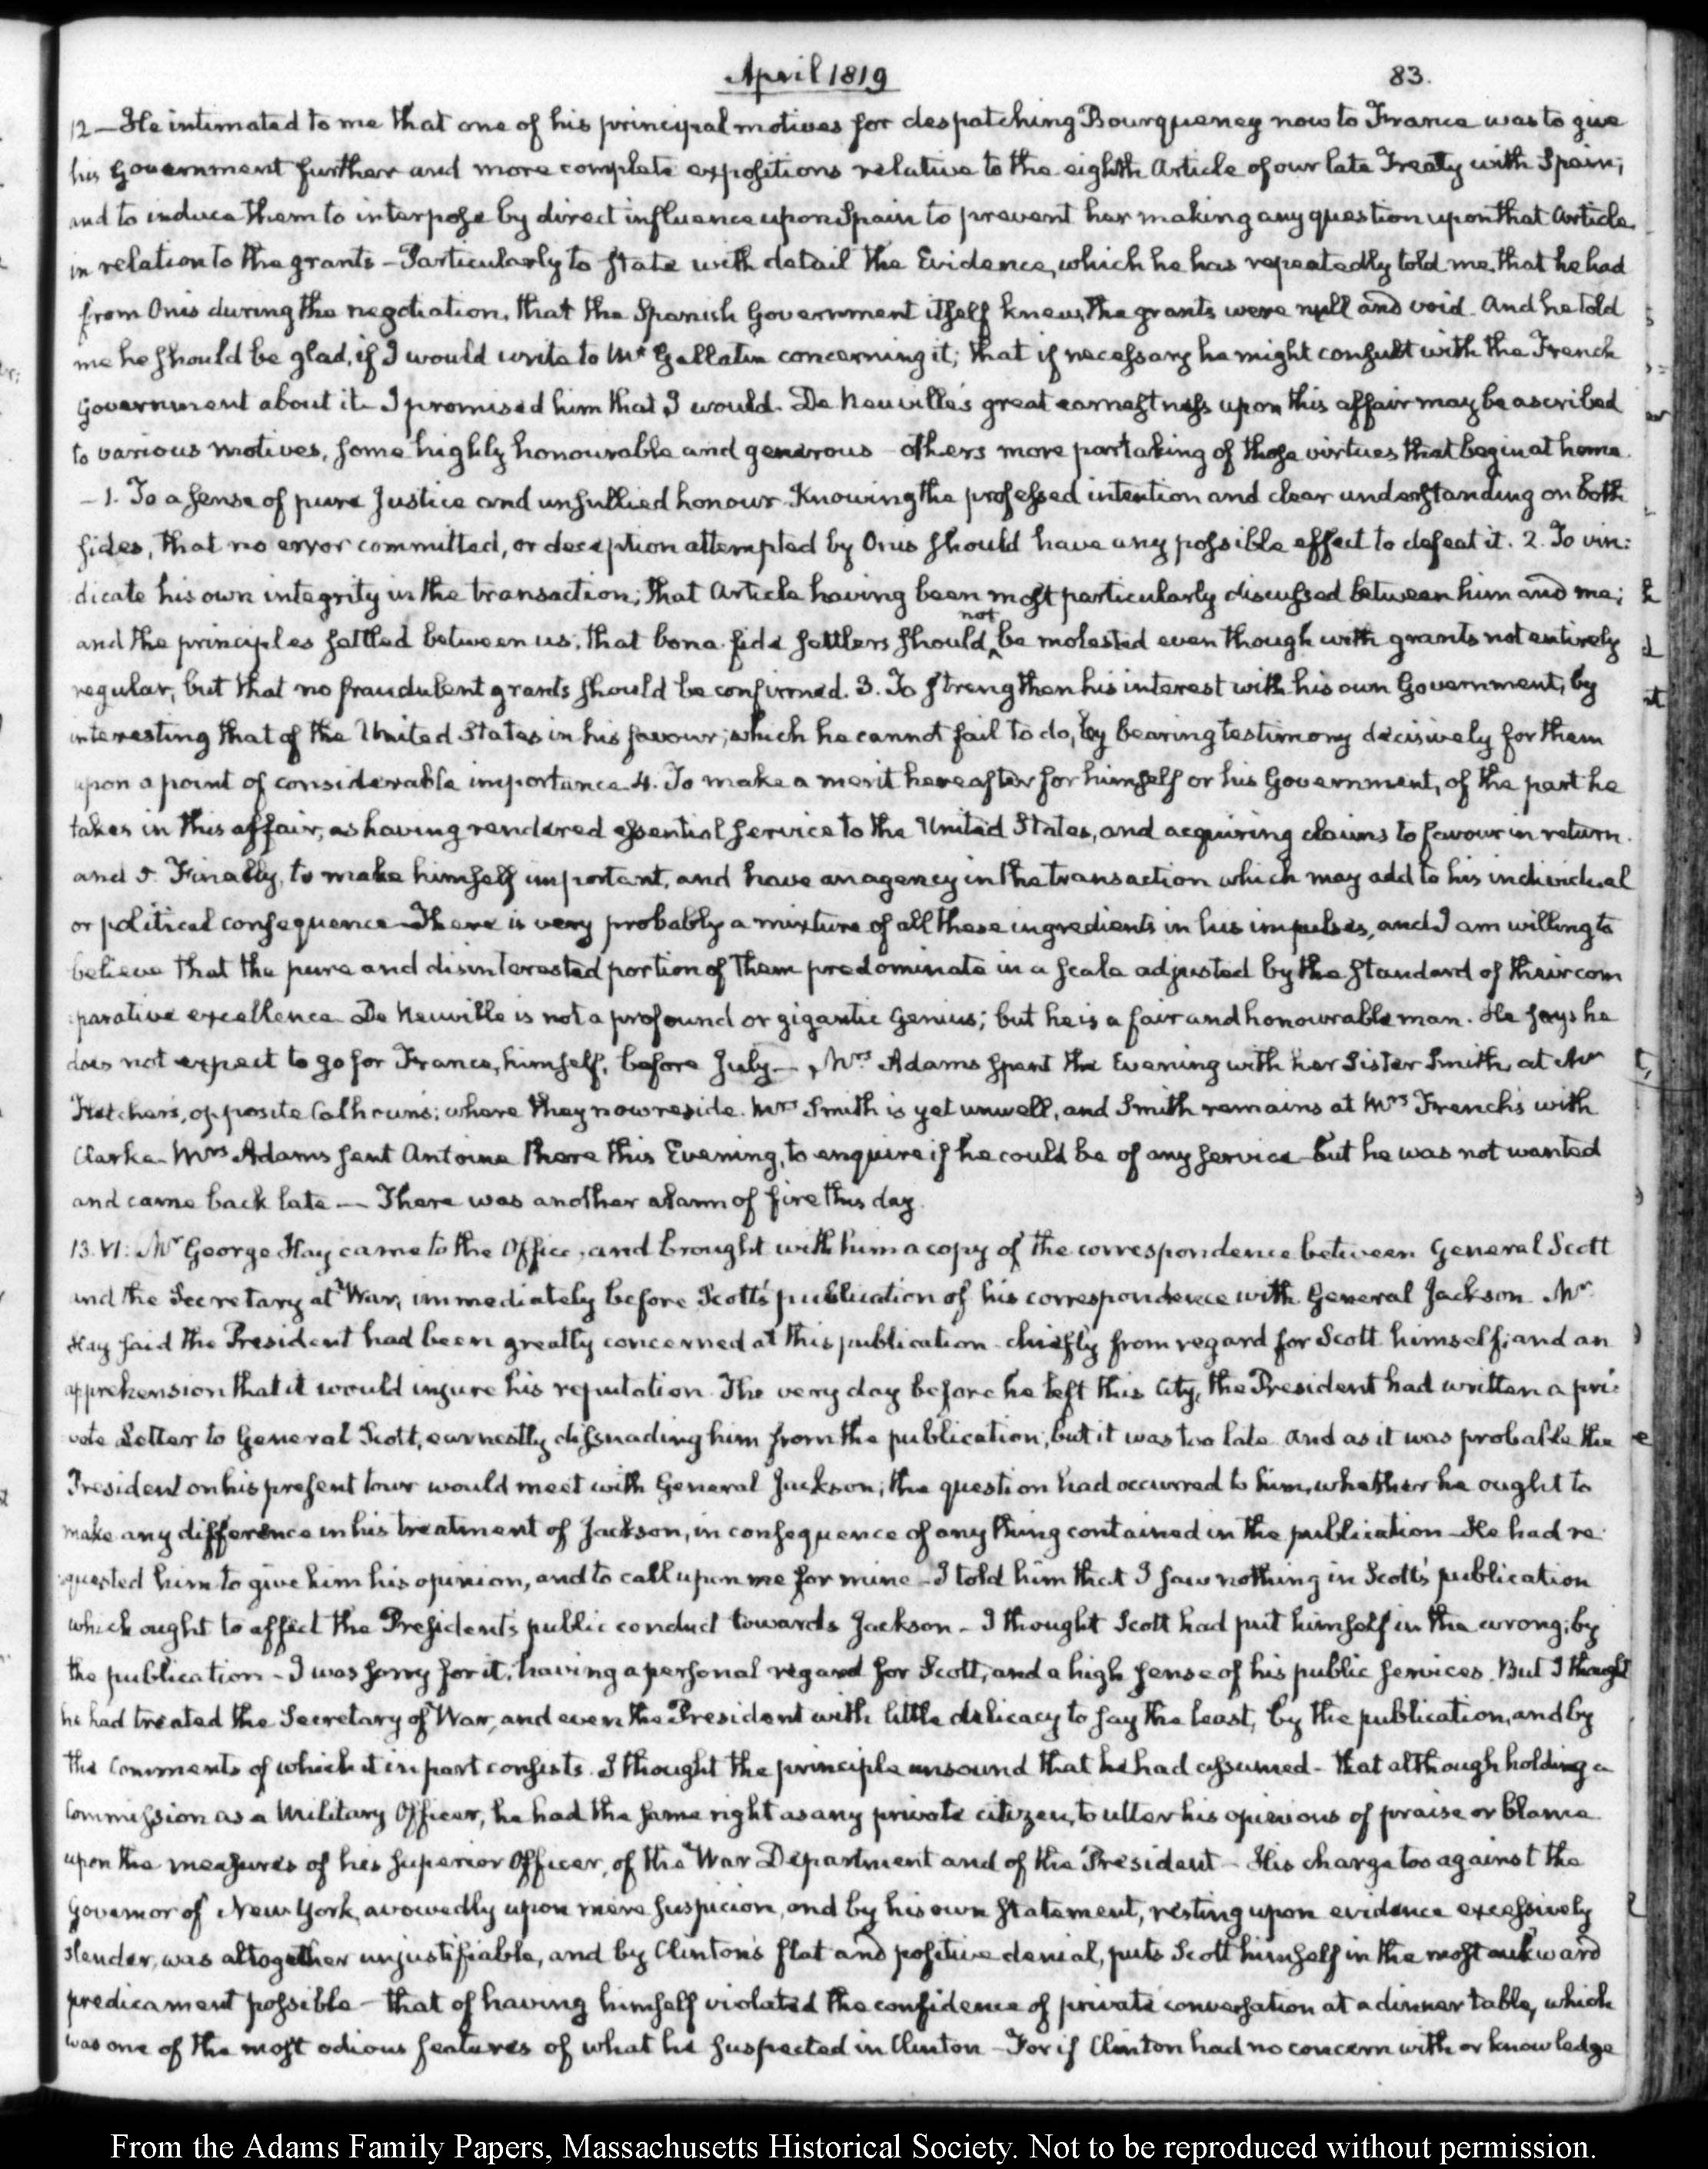 April 1819
83.
12 — He intimated to me that one of his principal motives for despatching Bourqueney now to France was to give
his Government further and more complete expositions relative to the eighth Article of our late Treaty with Spain;
and to induce them to interpose by direct influence upon Spain to prevent her making any question upon that Article
in relation to the grants – Particularly to state with detail the Evidence, which he has repeatedly told me, that he had
from Onis during the negotiation, that the Spanish Government itself knew, the grants were null and void. And he told
me he should be glad, if I would write to Mr Gallatin concerning it; that if necessary he might consult with the French
Government about it. I promised him that I would. De Neuville's great earnestness upon this affair may be ascribed
to various motives, some highly honourable and generous – others more partaking of those virtues that begin at home.
– 1. To a sense of pure Justice and unsullied honour. Knowing the professed intention and clear understanding on both
sides, that no error committed, or deception attempted by Onis should have any possible effect to defeat it. 2. To vin:
dicate his own integrity in the transaction; that Article having been most particularly discussed between him and me;
and the principles settled between us; that bona fide settlers should not be molested even though with grants not entirely
regular, but that no fraudulent grants should be confirmed. 3. To strengthen his interest with his own Government, by
interesting that of the United States in his favour; which he cannot fail to do, by bearing testimony decisively for them
upon a point of considerable importance. 4. To make a merit hereafter for himself or his Government, of the part he
takes in this affair, as having rendered essential service to the United States, and acquiring claims to favour in return.
and 5. Finally, to make himself important, and have an agency in the transaction which may add to his individual
or political consequence – There is very probably a mixture of all these ingredients in his impulses, and I am willing to
believe that the pure and disinterested portion of them predominate in a scale adjusted by the standard of their com
:parative excellence. De Neuville is not a profound or gigantic Genius; but he is a fair and honourable man. He says he
does not expect to go for France, himself, before July — Mrs Adams spent the Evening with her Sister Smith, at Mr
Fletcher's, opposite Calhoun's; where they now reside. Mrs Smith is yet unwell, and Smith remains at Mrs French's with
Clarke. Mrs Adams sent Antoine there this Evening, to enquire if he could be of any service – but he was not wanted
and came back late — There was another alarm of fire this day.
13. VI: Mr George Hay came to the Office, and brought with him a copy of the correspondence between General Scott
and the Secretary at War, immediately before Scott's publication of his correspondence with General Jackson. Mr
Hay said the President had been greatly concerned at this publication – chiefly from regard for Scott himself; and an
apprehension that it would injure his reputation. The very day before he left this City, the President had written a pri:
vate Letter to General Scott, earnestly dissuading him from the publication; but it was too late. And as it was probable the
President on his present tour would meet with General Jackson; the question had occurred to him, whether he ought to
make any difference in his treatment of Jackson, in consequence of any thing contained in the publication – He had re
:quested him to give him his opinion, and to call upon me for mine – I told him that I saw nothing in Scott's publication
which ought to affect the President's public conduct towards Jackson – I thought Scott had put himself in the wrong; by
the publication – I was sorry for it, having a personal regard for Scott, and a high sense of his public services. But I thought
he had treated the Secretary of War, and even the President with little delicacy to say the least, by the publication, and by
the Comments of which it in part consists. I thought the principle unsound that he had assumed – that although holding a
Commission as a Military Officer, he had the same right as any private citizen, to utter his opinions of praise or blame
upon the measures of his superior Officer, of the War Department and of the President – His charge too against the
Governor of New York, avowedly upon mere suspicion, and by his own statement, resting upon evidence excessively
slender, was altogether unjustifiable, and by Clinton's flat and positive denial, puts Scott himself in the most aukward
predicament possible – that of having himself violated the confidence of private conversation at a dinner table, which
was one of the most odious features of what he suspected in Clinton – For if Clinton had no concern with or knowledge
From the Adams Family Papers, Massachusetts Historical Society. Not to be reproduced without permission.